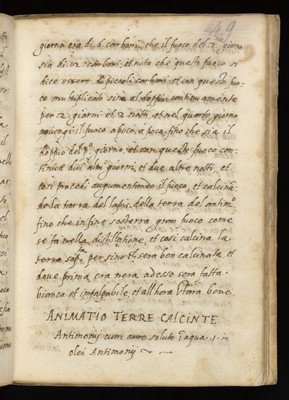 149
giorno sia di 4 carboni, che il fuoco del 2 giorno
sia di vi carboni, et nota che questo fuoco si
dice essere di piccoli carboni et con questo fuo-
co multiplicato sino al doppio continuamente
per 2 giorni et 2 notti, et nel quarto giorno
il fuoco a poco a poco fino che sia il
doppio del giorno, et con questo fuoco con-
tinua dui altri giorni, et due altre notti, et
cosi procedi augumentando il fuoco, et calcina
della terra del lapis della terra del antim.
fino che infine sosterra gran fuoco come
se fa nella distillatione, et cosi calcina la
terra per sino che sera ben calcinata, et
dove prima era nera adesso sera fatta
bianca et impalpabile, et all'hora stara bene.
ANIMATIO TERRE CALCINTE
Antimonij cum auro soluto aqua .i. in
olei Antimonij